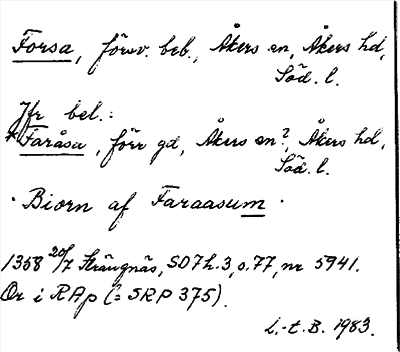 Forsa, försv. beb., Åkers sn, Åkers hd,
Söd. l.
Jfr bel.:
*Faråsa, förr gd, Åkers sn?, Åkers hd,
Söd. l.
· Biorn af Faraasum ·
1358 20/7 Strängnäs, SD7h.3, s.77, nr 5941.
Or i RAp (= SRP 375).
L.-t. B. 1983.